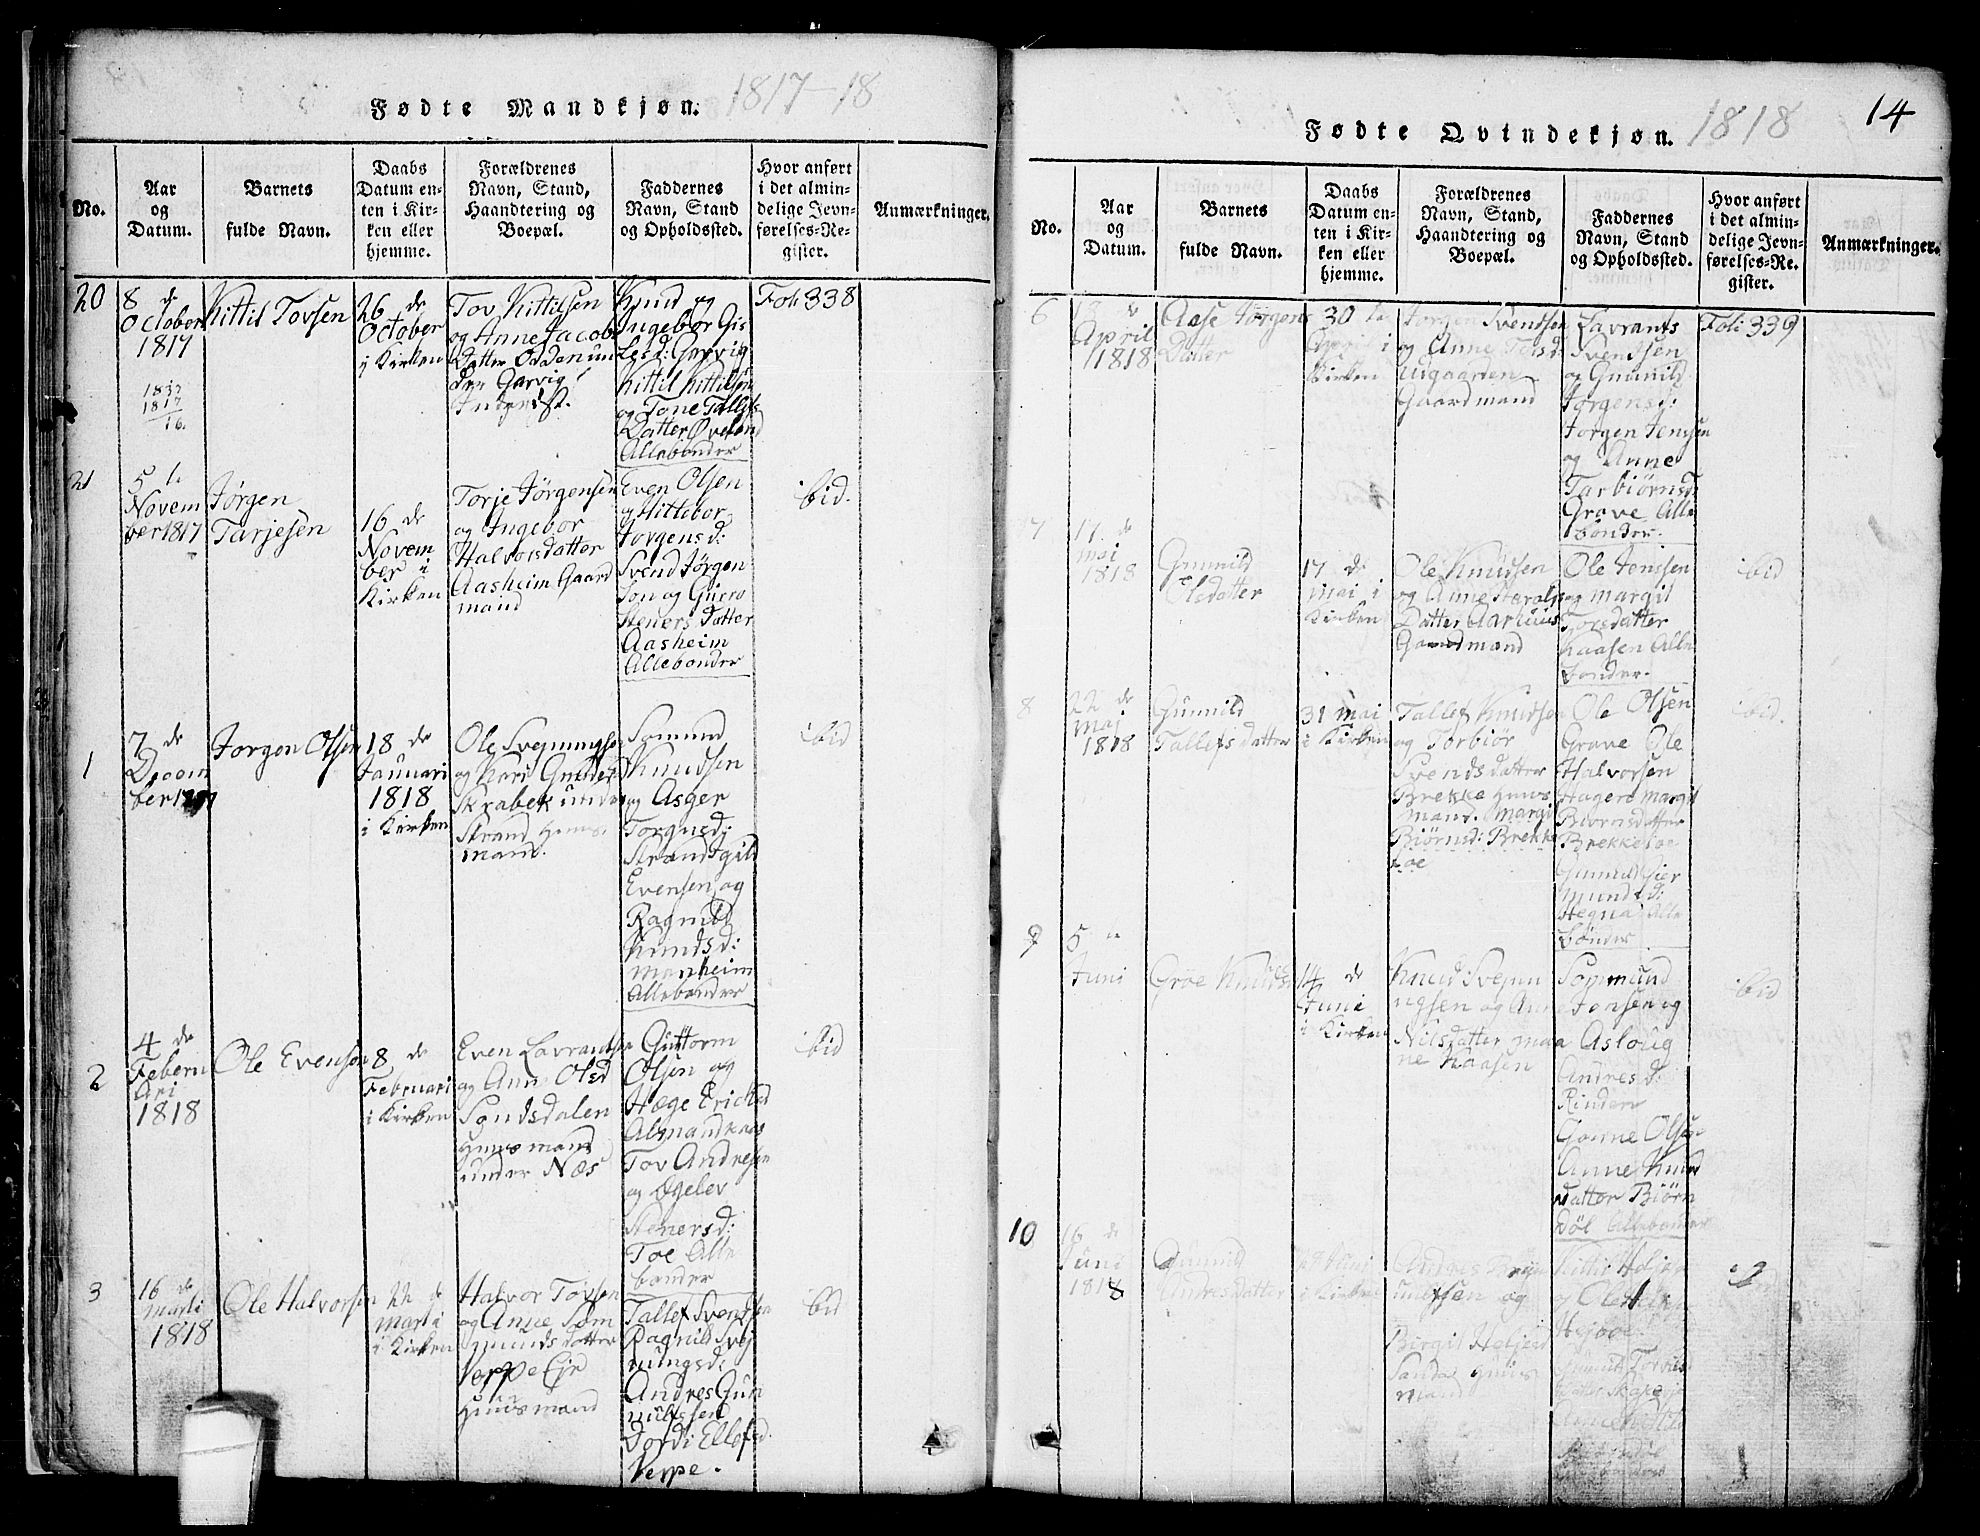 Fødte Mandkjøn. 1817-18
No.
Aar
og
Datum.
Barnets
fulde Navn.
Daabs
Datum en-
ten i Kir-
ken eller
hjemme.
Forældrenes
Navn, Stand,
Haandtering og
Boepæl.
Faddernes
Navn, Stand
og Opholdssted.
Hvor anført
i det almin-
delige Jevn-
førelses-Re-
gister.
Anmærkninger.
20
8 de
October
1817
1817
16.
Kittil Tovsen
26 de
October
i Kirken
Tov Kittilsen
og Anne Jacobs
Datter Oddenun
den Garvig
Knud og
Ingebor Gis
lesd: Garvig
Kittil Kittilsen
og Tone Tallefs
Datter Øvelund
Allebonder
Foli 338
21
5 te
Novem
ber 1817
Jørgen
Tarjesen
16 de
Novem
ber i
Kirken
Torje Jørgensen
og Ingebor
Halvorsdatter
Aasheim Gaard
mand
Even Olsen
og Hittebor
Jorgensd:
Svend Jørgen
Son og Guero
Steners Datter
Aasheim
Allebonder
ibid.
1
7 de
Decem
ber 1817
Jorgen Olsen
18 de
Januari
1818
i Kirken
Ole Svejnungsen
og Kari Gunders
Skrabek under
Strand Huus
mand.
Somund
Knudsen
og Asger
Torgusd:
Strand Egild
Evensen og
Ragnild
Knudsd:
Manheim
Allebonder
ibid
2
4 de
Febru
ari
1818
Ole Evensen
8 de
Februari
i Kirken
Even Lavrantsen
og Ann Olsd
Sondsdalen
Huusmand
under Næs
Guttorm
Olsen og
Hæge Ericksd
Almandkaas
Tov Andresen
og Øgelev
Stenersd:
Toe Alle
bonder
ibid
3
16 de
Marti
1818
Ole Halvorsen
22 de
Marti
i Kirken
Halvor Tovsen
og Anne Som
munds datter
Verpe Eje
Huusmand
Tallef Svendsen
Ragnild Svej
nungsd:
Andres Gun
nulfsen
Jordi Ellefsd.
Verpe.
ibid
14
Fødte Qvindekjøn. 1818
No.
Aar
og
Datum.
Barnets
fulde Navn.
Daabs
Datum en-
ten i Kir-
ken eller
hjemme.
Forældrenes
Navn, Stand,
Haandtering og
Boepæl.
Faddernes
Navn, Stand
og Opholdssted.
Hvor anført
i det almin-
delige Jevn-
førelses-Re-
gister.
Anmærkninger.
6
April
1818
Aase Jørgens
Datter
30 te
April i
Kirken
Jorgen Svendsen
og Anne Tolsd:
Uigaarden
Gaardmand
Lavrants
Svendsen
og Gunnild
Jorgensd:
Jorgen Jensen
og Anne
Tarbiørnsd:
Grave Alle
bonder.
Foli 339
7
11 de
Maj
1818
Gunnild
Olsdatter
17 de
Mai i
Kirken
Ole Knudsen
og Anne Haralds
Datter Aarhuus
Gaardmand
Ole Jenssen
og Margit
Torsdatter
Kaasen Alle
bonder.
ibid
8
22 de
Maj
1818
Gunnild
Tallefsdatter
31 Mai
i Kirken
Tallef Knudsen
og Torbiør
Svendsdatter
Brekke Huus
mand. Margit
Biørnsd: Brekke
toe
Ole Olsen
Grave Ole
Halvorsen
Hagene Margit
Biornsdatter
Brekke toe
Gunnild Gier
munds d:
Hegna Alle
bønder
ibid.
9
5 te
Juni
Groe Knudsd
14 de
Juni
i Kirken
Knud Svejnu
ngsen og Anne
Nilsdatter
Kaasen
Sommund
Jonsen og
Asloug
Andresd:
Rinden
Gunne Olsen
Anne Knud
datter Biørn
døl Allebonder
ibid
10
16 de
Juni
1818
Gunnild
Andresdatter
i Kirken
Andres
og
Birgit Heljesd
Sanda Huus
mand
Kittil Heljesen
Ole
Gunnild